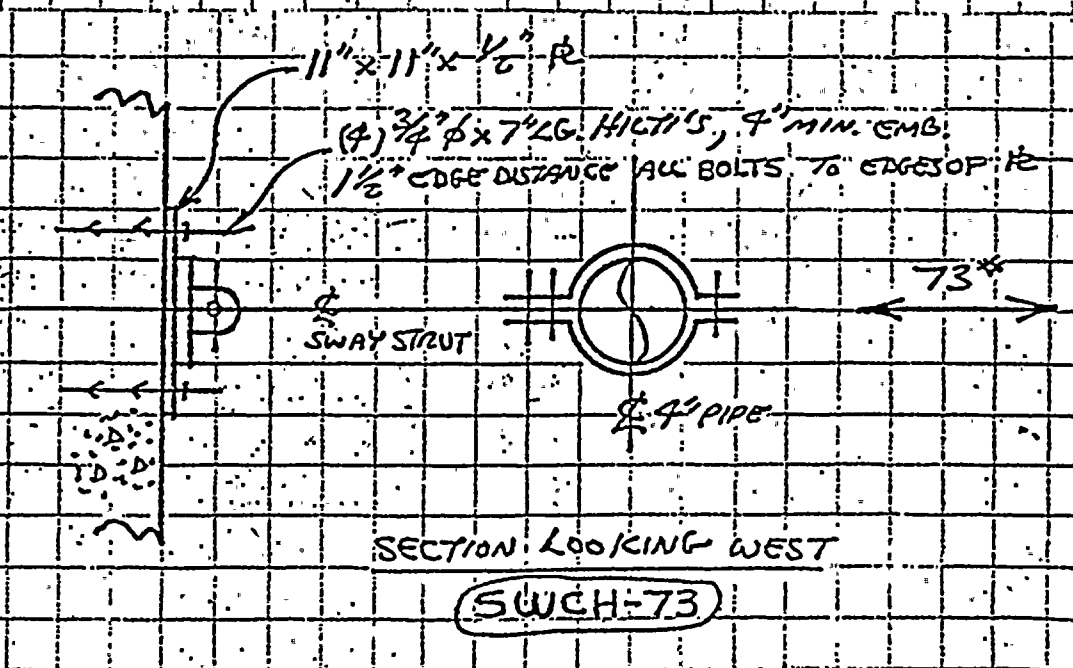 11" x 11" x 1/2" ⅊
(4) 3/4" φ x 7" LG. HILTI'S, 4" MIN. EMB.
1 1/2" EDGE DISTANCE ALL BOLTS TO EDGES OF ⅊
73#
℄
SWAY STRUT
℄ 4" PIPE
D
D D
SECTION LOOKING WEST
SWCH-73